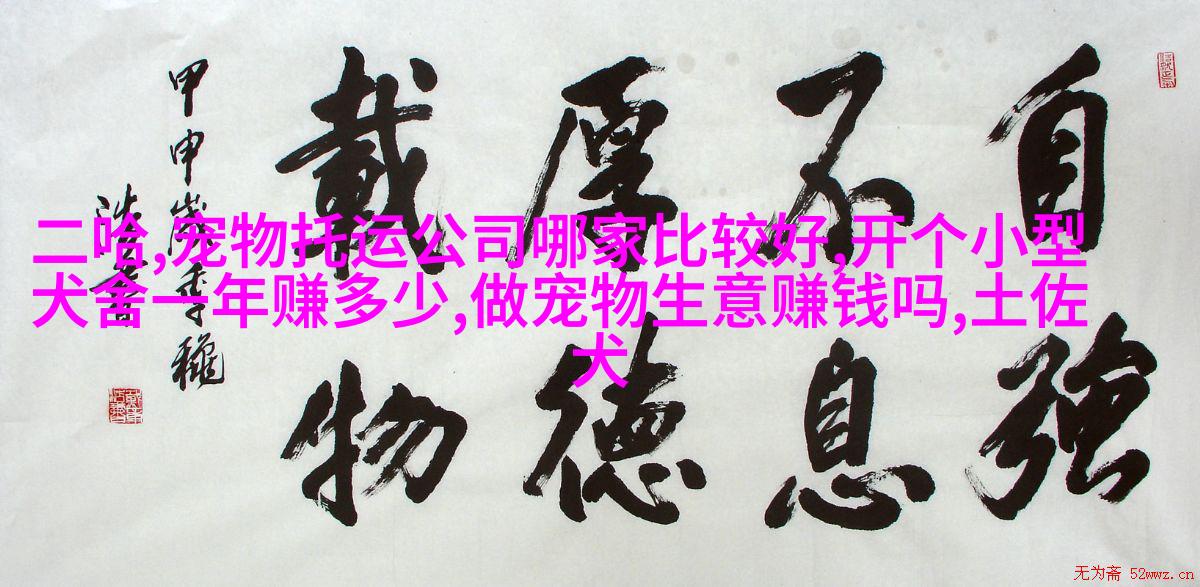 自强
不息
厚德
载物
甲申岁季秋
二哈,宠物托运公司哪家比较好,开个小型
犬舍一年赚多少,做宠物生意赚钱吗,土佐
犬
无为斋 52wwz.cn